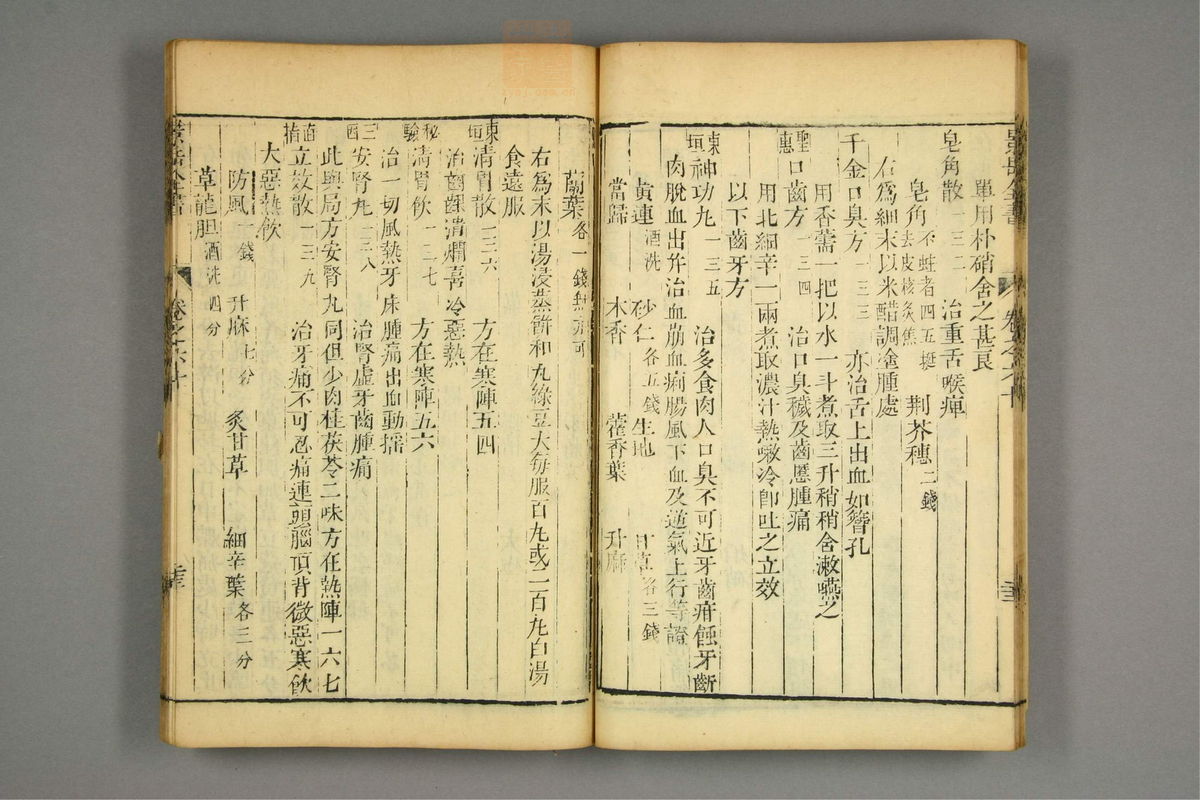 景岳全書 卷之六十
單用朴硝含之甚良
皂角散一三二 治重舌喉痺
皂角不蛀者四五挺去皮核炙焦 荆芥穗二錢
右爲細末以米醋調塗腫處
千金口臭方一三三 亦治舌上出血如簪孔
用香薷一把以水一斗煮取三升稍稍含漱嚥之
聖惠口齒方一三四 治口臭穢及齒䘌腫痛
用北細辛一兩煮取濃汁熱嗽冷卽吐之立效
以下齒牙方
東垣神功丸一三五 治多食肉人口臭不可近牙齒疳蝕牙齗
肉脫血出并治血崩血痢腸風下血及逆氣上行等證
黃連酒洗 砂仁各五錢 生地 甘草各三錢
當歸 木香 藿香葉 升麻
蘭葉各一錢無亦可
右爲末以湯浸蒸餅和丸綠豆大每服百丸或二百丸白湯
食遠服
東垣清胃散一三六 方在寒陣五四
治齒齦潰爛喜冷惡熱
秘驗清胃飲一三七 方在寒陣五六
治一切風熱牙床腫痛出血動搖
三因安腎丸一三八 治腎虛牙齒腫痛
此與局方安腎丸同但少肉桂茯苓二味方在熱陣一六七
直指立效散一三九 治牙痛不可忍痛連頭腦頂背微惡寒飲
大惡熱飲
防風一錢 升麻七分 炙甘草 細辛葉各三分
草龍胆酒洗四分
景岳全書 卷之六十